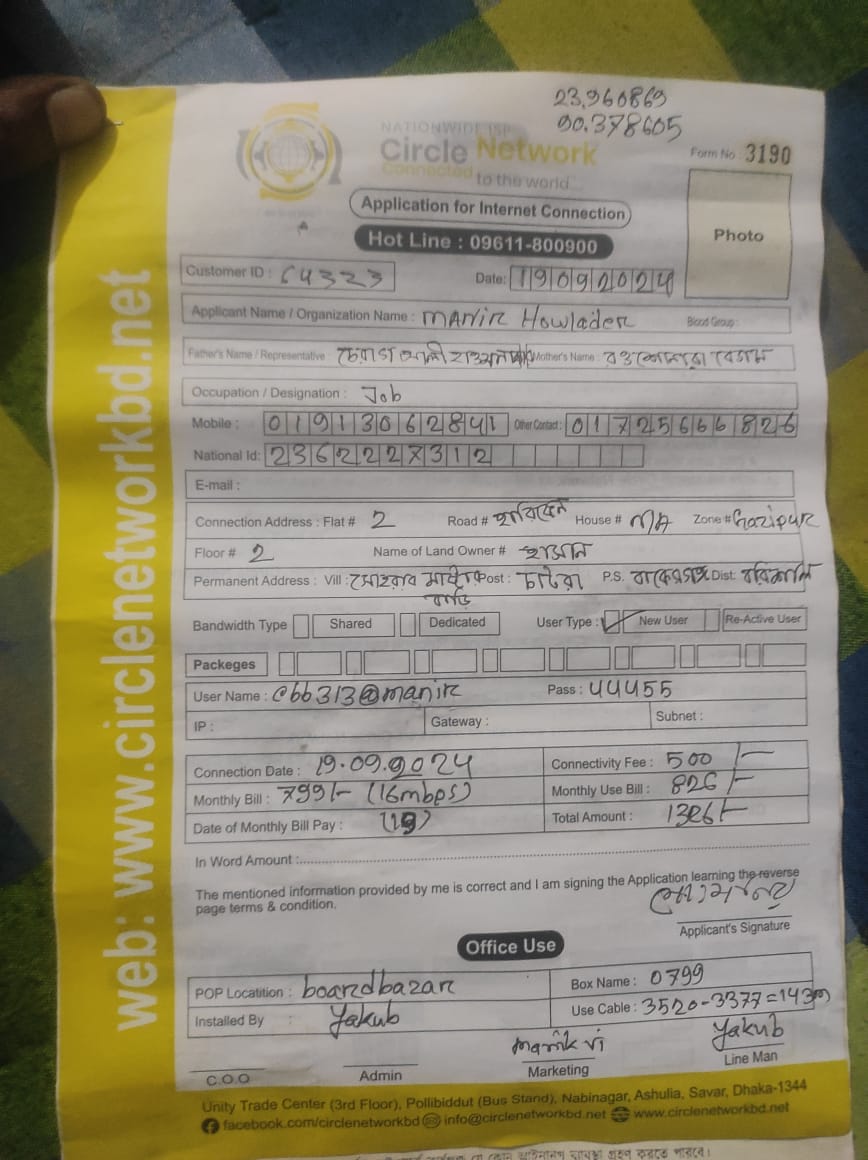 23.960869
90.378605
NATIONWIDE ISP
Circle Network
Connected to the world
Form No : 3190
Application for Internet Connection
Photo
Hot Line : 09611-800900
Customer ID : 64323 Date: 19092024
Applicant Name / Organization Name : MANIR Howlader Blood Group :
Father's Name / Representative : Mother's Name : বেগম
Occupation / Designation : Job
Mobile : 01913062841 Other Contact : 01725666826
National Id: 2362227312
E-mail :
Connection Address : Flat # 2 Road # House # MA Zone # Gazipur
Floor # 2 Name of Land Owner # হাসান
Permanent Address : Vill : Post : P.S. বাকেরগঞ্জ Dist: বরিশাল
বাড়ি
Bandwidth Type Shared Dedicated User Type : New User Re-Active User
Packeges
User Name : @manir Pass : 44455
IP : Gateway : Subnet :
Connection Date : 19.09.2024 Connectivity Fee : 500/-
Monthly Bill : 799/- (16mbps) Monthly Use Bill : 826/-
Date of Monthly Bill Pay : (19) Total Amount : 1326/-
In Word Amount :
The mentioned information provided by me is correct and I am signing the Application learning the reverse
page terms & condition.
Applicant's Signature
Office Use
POP Locatition : boardbazar Box Name : 0799
Installed By : Yakub Use Cable : 3520-3377=143m
Manik vi Yakub
C.O.O Admin Marketing Line Man
Unity Trade Center (3rd Floor), Pollibiddut (Bus Stand), Nabinagar, Ashulia, Savar, Dhaka-1344
facebook.com/circlenetworkbd info@circlenetworkbd.net www.circlenetworkbd.net
web: www.circlenetworkbd.net